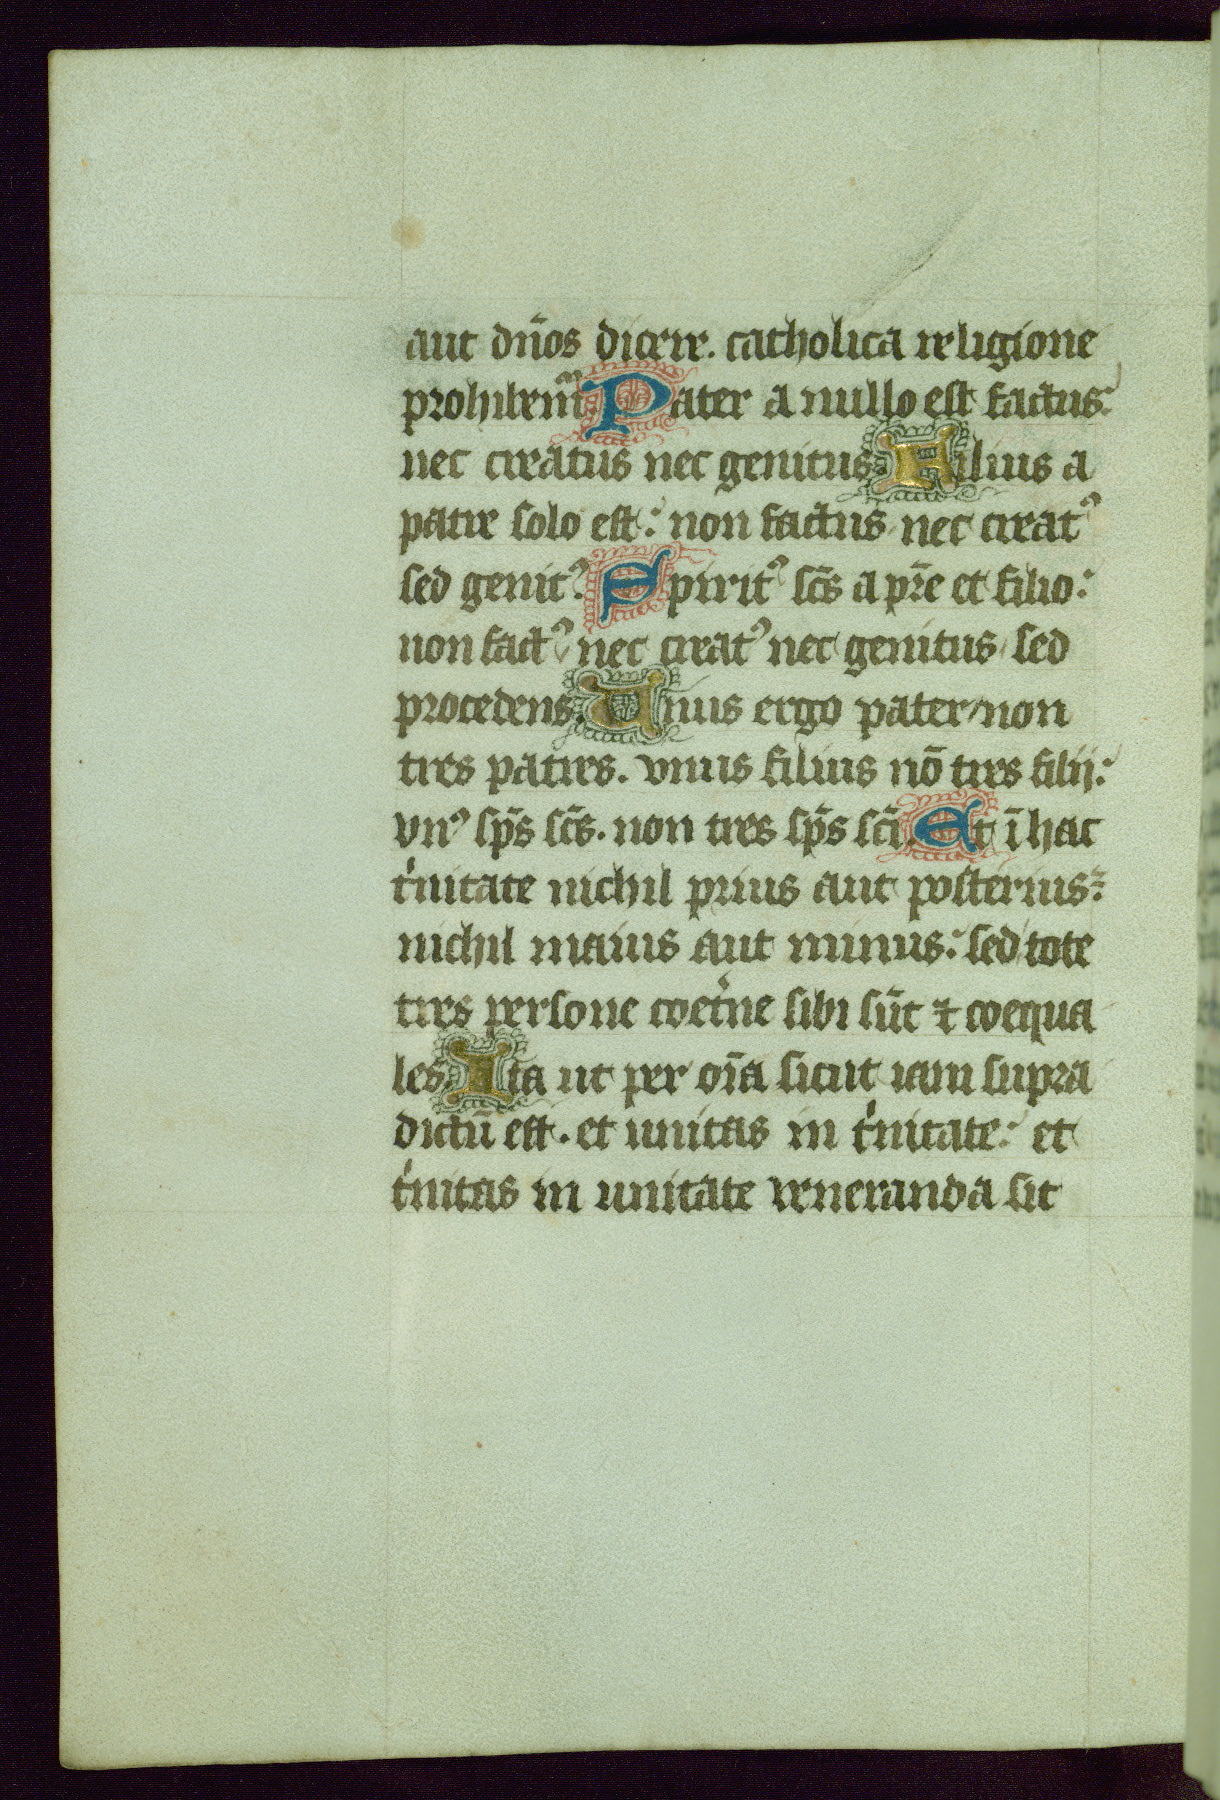 aut dn̄os dicere. catholica religione
prohibem̄᷒. Pater a nullo est factus:
nec creatus nec genitus. Filius a
patre solo est: non factus nec creatꝰ
sed genitꝰ. Spiritꝰ sc̄s a pr̄e et filio:
non factꝰ nec creatꝰ nec genitus sed
procedens. Unus ergo pater non
tres patres. vnus filius nō tres filij:
vnꝰ sp̄s sc̄s. non tres sp̄s sc̄i. Et ī hac
tͥnitate nichil prius aut posterius:
nichil maius aut minus: sed tote
tres persone coet̾ne sibi sūt ⁊ coequa
les. Ita ut per oīa sicut iam supra
dictū est. et unitas in tͥnitate: et
tͥnitas in unitate veneranda sit